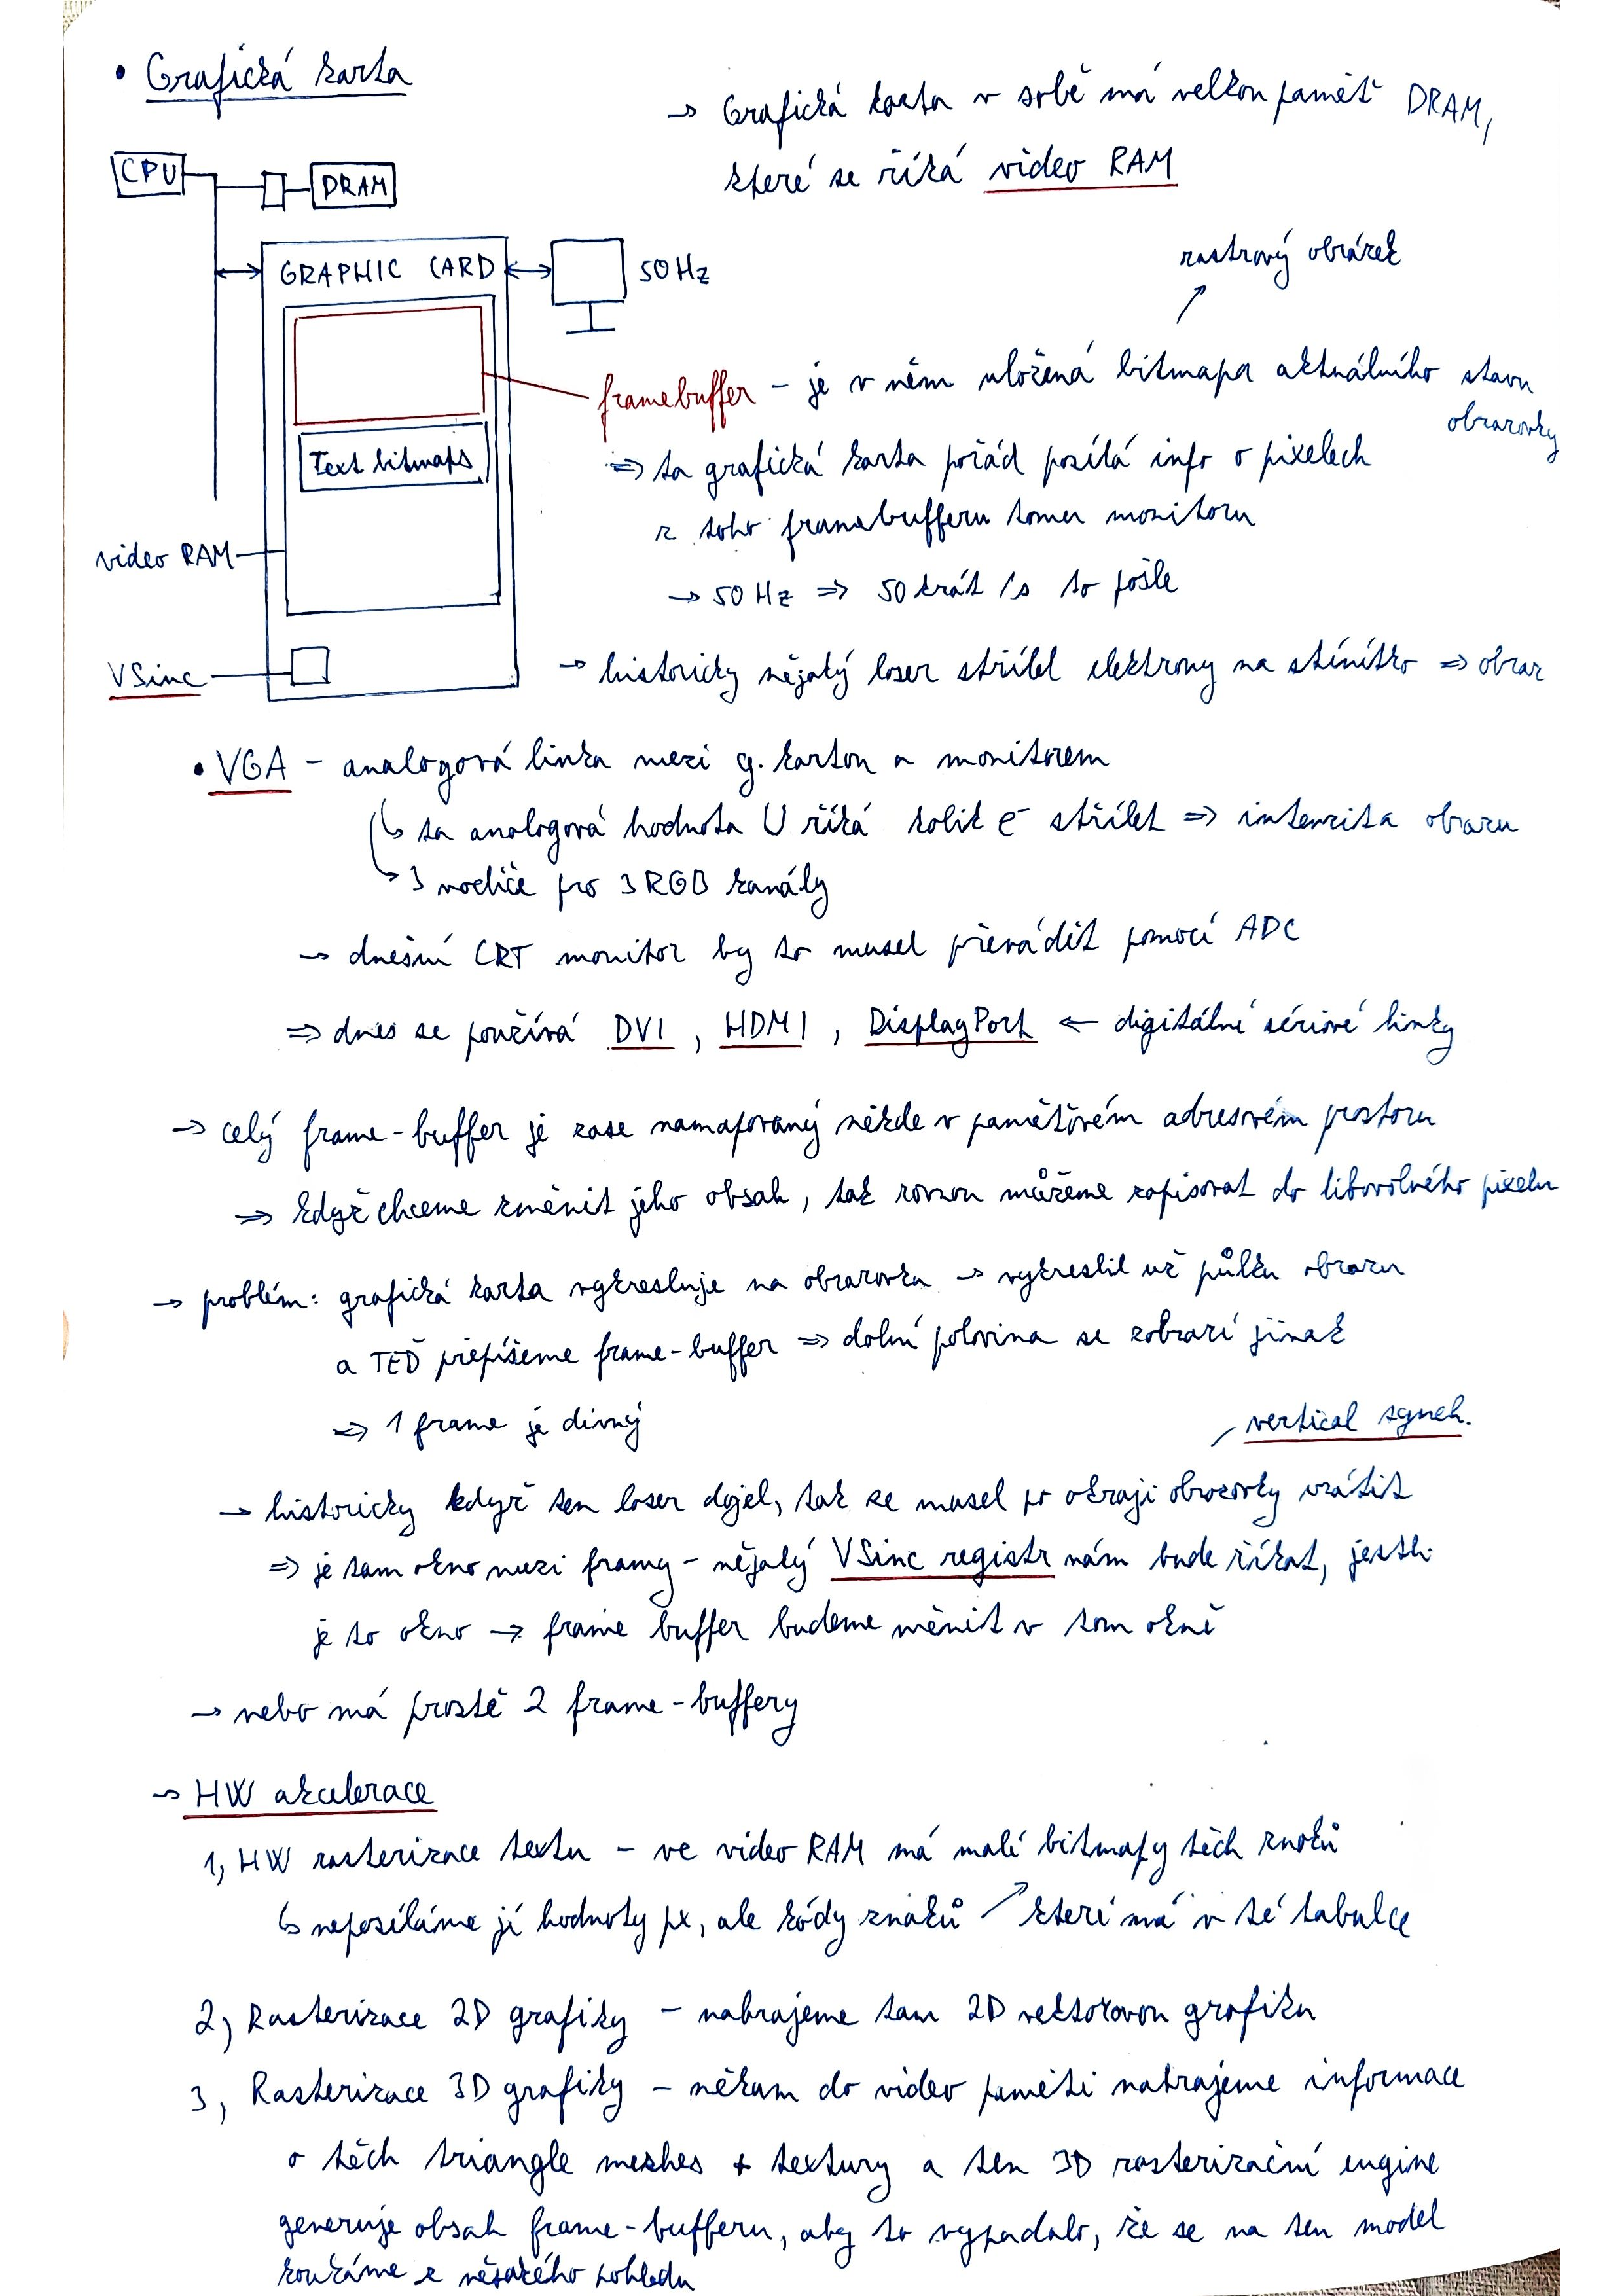 • Grafická karta
→ Grafická karta v sobě má velkou paměť DRAM,
které se říká video RAM
CPU
DRAM
GRAPHIC CARD
50 Hz
rastrový obrázek
framebuffer – je v něm uložená bitmapa aktuálního stavu
obrazovky
Text bitmaps
⇒ ta grafická karta pořád posílá info o pixelech
z toho framebufferu tomu monitoru
video RAM
→ 50 Hz ⇒ 50 krát /s to pošle
VSinc
→ historicky nějaký laser střílel elektrony na stínítko ⇒ obraz
• VGA – analogová linka mezi g. kartou a monitorem
↳ ta analogová hodnota U říká kolik e⁻ střílet ⇒ intenzita obrazu
↳ 3 vodiče pro 3 RGB kanály
→ dnešní CRT monitor by to musel převádět pomocí ADC
⇒ dnes se používá DVI, HDMI, DisplayPort ← digitální sériové linky
→ celý frame-buffer je zase namapovaný někde v paměťovém adresovém prostoru
⇒ když chceme změnit jeho obsah, tak rovnou můžeme zapisovat do libovolného pixelu
→ problém: grafická karta vykresluje na obrazovku → vykreslil už půlku obrazu
a TEĎ přepíšeme frame-buffer ⇒ dolní polovina se zobrazí jinak
⇒ 1 frame je divný
vertical synch.
→ historicky když ten laser dojel, tak se musel po okraji obrazovky vrátit
⇒ je tam okno mezi framy – nějaký VSinc registr nám bude říkat, jestli
je to okno → frame buffer budeme měnit v tom okně
→ nebo má prostě 2 frame-buffery
→ HW akcelerace
1, HW rasterizace textu – ve video RAM má malé bitmapy těch znaků
↳ neposíláme jí hodnoty px, ale kódy znaků ↗ které má v té tabulce
2, Rasterizace 2D grafiky – nahrajeme tam 2D vektorovou grafiku
3, Rasterizace 3D grafiky – někam do video paměti nahrajeme informace
o těch triangle meshes + textury a ten 3D rasterizační engine
generuje obsah frame-bufferu, aby to vypadalo, že se na ten model
koukáme z nějakého pohledu